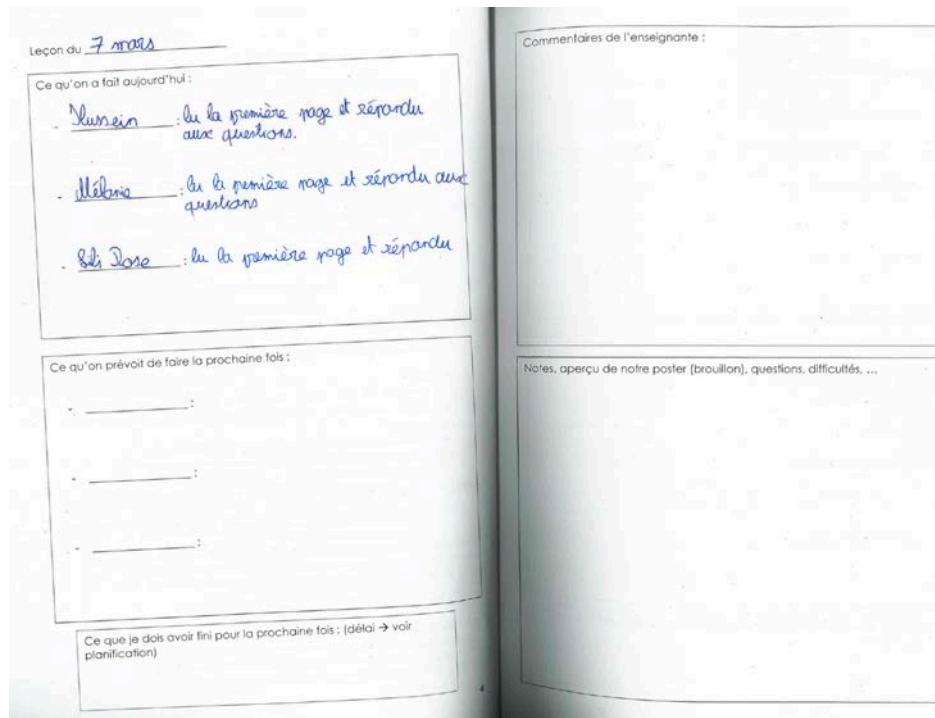 Leçon du 7 mars
Ce qu'on a fait aujourd'hui :
- Hussein : lu la première page et répondu
aux questions.
- Mélanie : lu la première page et répondu aux
questions
- Lili Rose : lu la première page et répondu
Ce qu'on prévoit de faire la prochaine fois :
- ____________ :
- ____________ :
- ____________ :
Ce que je dois avoir fini pour la prochaine fois : (délai → voir
planification)
4
Commentaires de l'enseignante :
Notes, aperçu de notre poster (brouillon), questions, difficultés, ...